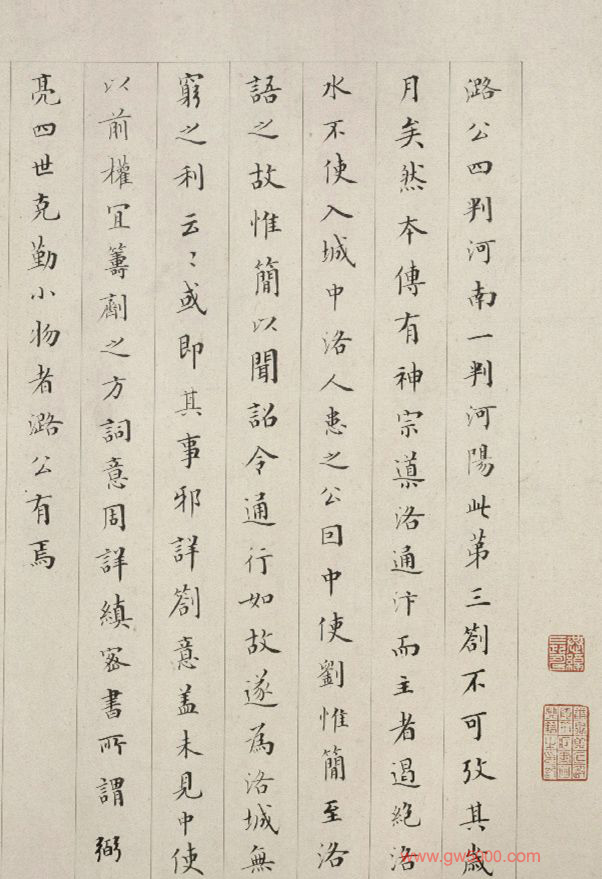 潞公四判河南一判河陽此第三劄不可攷其歲
月矣然本傳有神宗導洛通汴而主者遏絶洛
水不使入城中洛人患之公因中使劉惟簡至洛
語之故惟簡以聞詔令通行如故遂為洛城無
窮之利云〻或即其事邪詳劄意盖未見中使
以前權宜籌劑之方詞意周詳縝密書所謂弼
亮四世克勤小物者潞公有焉
www.gw5000.com